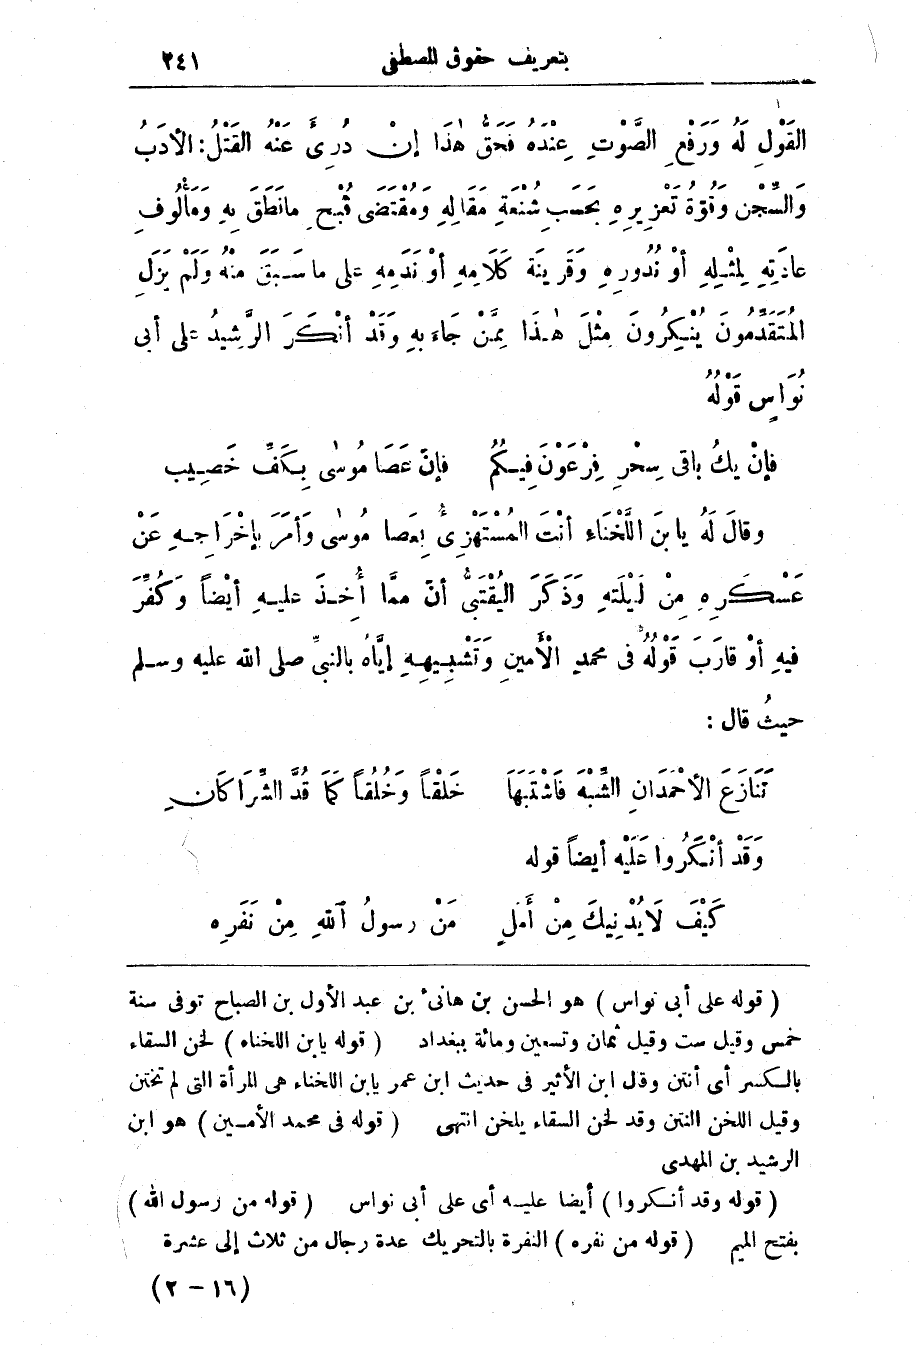 بتعريف حقوق المصطفى ٢٤١
القَوْلِ لَهُ وَرَفْعِ الصَّوْتِ عِنْدَهُ فَحَقُّ هٰذَا إنْ دُرِئَ عَنْهُ القَتْلُ: الأدَبُ
وَالسِّجْنُ وَقُوَّةُ تَعْزِيرِهِ بِحَسَبِ شُنْعَةِ مَقَالِهِ وَمُقْتَضَى قُبْحِ مانَطَقَ بِهِ وَمَأْلُوفِ
عادَتِهِ لِمثْلِهِ أوْ نُدُورِهِ وَقَرِينَة كَلَامِهِ أوْ نَدَمِهِ على ما سَبَقَ مِنْهُ وَلَمْ يَزَلِ
المُتَقَدِّمُونَ يُنْكِرُونَ مِثْلَ هٰذَا مِمَّنْ جَاءَ بِهِ وَقَدْ أنْكَرَ الرَّشِيدُ على أبى
نُوَاسٍ قَوْلَهُ
فإنْ يكُ باقى سِحْرِ فِرْعَوْنَ فِيكُمُ فإنّ عَصَا مُوسٰى بِكَفِّ خَصِيب
وقالَ لَهُ يا بنَ اللَّخْنَاءِ أنْتَ المُسْتَهْزِئُ بِعَصا مُوسٰى وَأمَرَ بإخْرَاجِهِ عَنْ
عَسْكَرِهِ مِنْ لَيْلَتِهِ وَذَكَرَ اليُقْتَبِىُّ أنّ ممَّا أُخِذَ عليهِ أيْضاً وَكُفِّرَ
فيهِ أوْ قارَبَ قَوْلُهُ فى محمدٍ الأمينِ وَتَشْبِيهِهِ إيَّاهُ بالنبىِّ صلى الله عليه وسلم
حيثُ قال :
تَنَازَعَ الأحْمَدَانِ الشِّبْهَ فَاشْتَبَهَا خَلْقاً وَخُلُقاً كما قُدَّ الشِّرَاكَانِ
وَقَدْ أنْكَرُوا عَلَيْهِ أيضاً قوله
كَيْفَ لَا يُدْنِيكَ مِنْ أمَلٍ مَنْ رسولُ اللهِ مِنْ نَفَرِهِ
( قوله على أبى نواس ) هو الحسن بن هانى ء بن عبد الأول بن الصباح توفى سنة
خمس وقيل ست وقيل ثمان وتسعين ومائة ببغداد ( قوله يا بن اللخناء ) لخن السقاء
بالكسر أى أنتن وقال ابن الأثير فى حديث ابن عمر يابن اللخناء هى المرأة التى لم تختن
وقيل اللخن النتن وقد لخن السقاء يلخن انتهى ( قوله فى محمد الأمين ) هو ابن
الرشيد بن المهدى
( قوله وقد أنكروا ) أيضا عليه أى على أبى نواس ( قوله من رسول الله )
بفتح الميم ( قوله من نفره ) النفرة بالتحريك عدة رجال من ثلاث إلى عشرة
(١٦ – ٢)